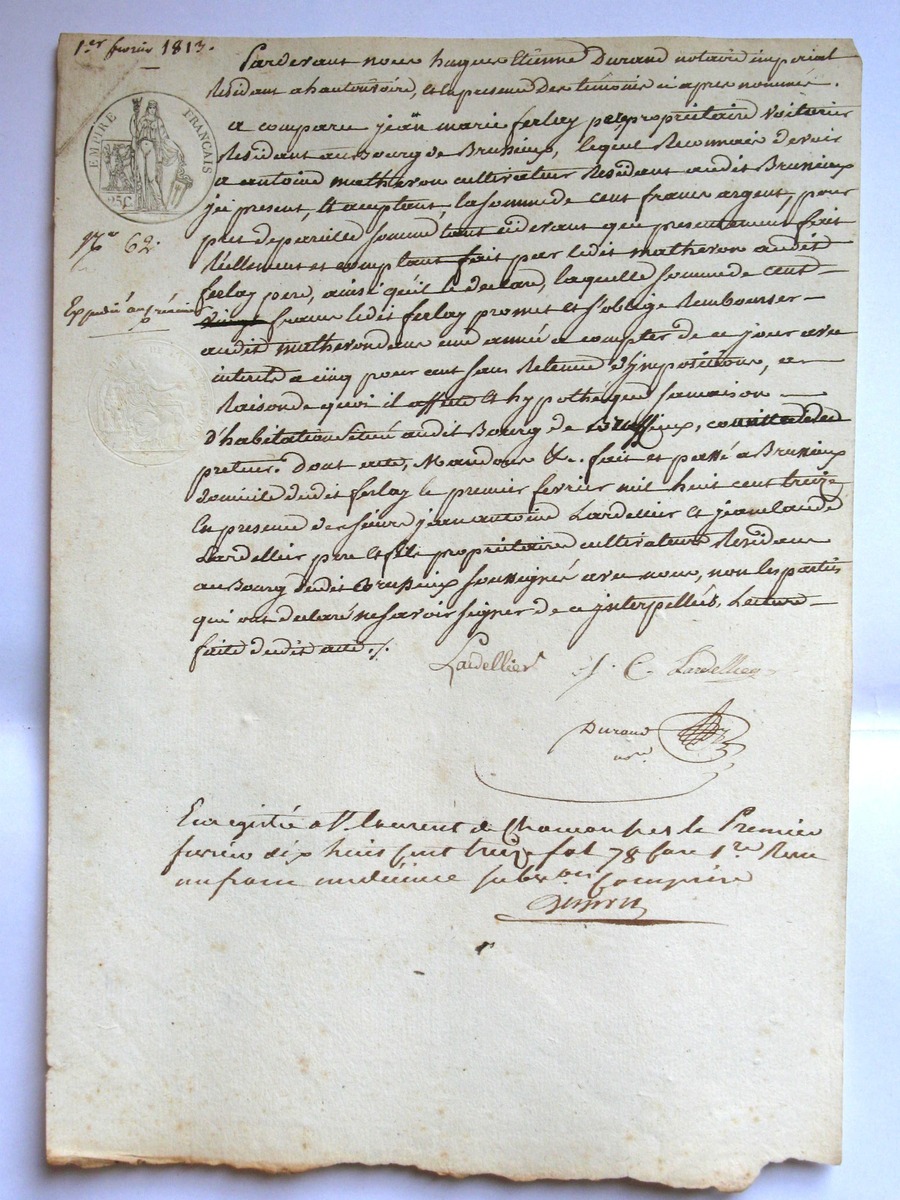 1.er fevrier 1813.
Pardevant nous hugues Etienne Durand notaire imperial
Residant a hauterivoire, et en presence des témoins ci apres nommés.
EMPIRE FRANÇAIS
25C
N.o 62.
Expedié au prémier
a comparu jean marie ferlay pere, propriétaire voiturier
Residant au bourg de Brussieux, lequel Reconnait devoir
a antoine matheron cultivateur Residant audit Brussieux
ici present, et acceptant la somme de cent francs argent, pour
pret de pareille somme tant cidevant que presentement fait
réellement et comptant fait par ledit matheron audit
ferlay pere, ainsi qu'il le declare, laquelle somme de cent
vingt francs ledit ferlay promet et s'oblige Rembourser
audit matheron dans une année a compter de ce jour avec
interets a cinq pour cent sans Retenue d'impositions, a
Raison de quoi il affecte et hypotheque sa maison
d'habitation située audit Bourg de Brussieux,
preteur. Dont acte, Mandons &c. fait et passé a Brussieux
domicile dudit ferlay le premier fevrier mil huit cent treize
En presence de sieurs jean antoine Lardellier et jean claude
Lardellier pere et fils propriétaires cultivateurs Residans
au Bourg dudit Brussieux soussignés avec nous, non les parties
qui ont declaré ne savoir signer de ce interpellés, Lecture
faite dudit acte ./.
Lardellier J. C. Lardellier
Durand
n.re
Enregistré a St Laurent de Chamousset le Premier
fevrier dix huit cent treize fol 78 case 1.re Recu
un franc un décime subvon Comprise